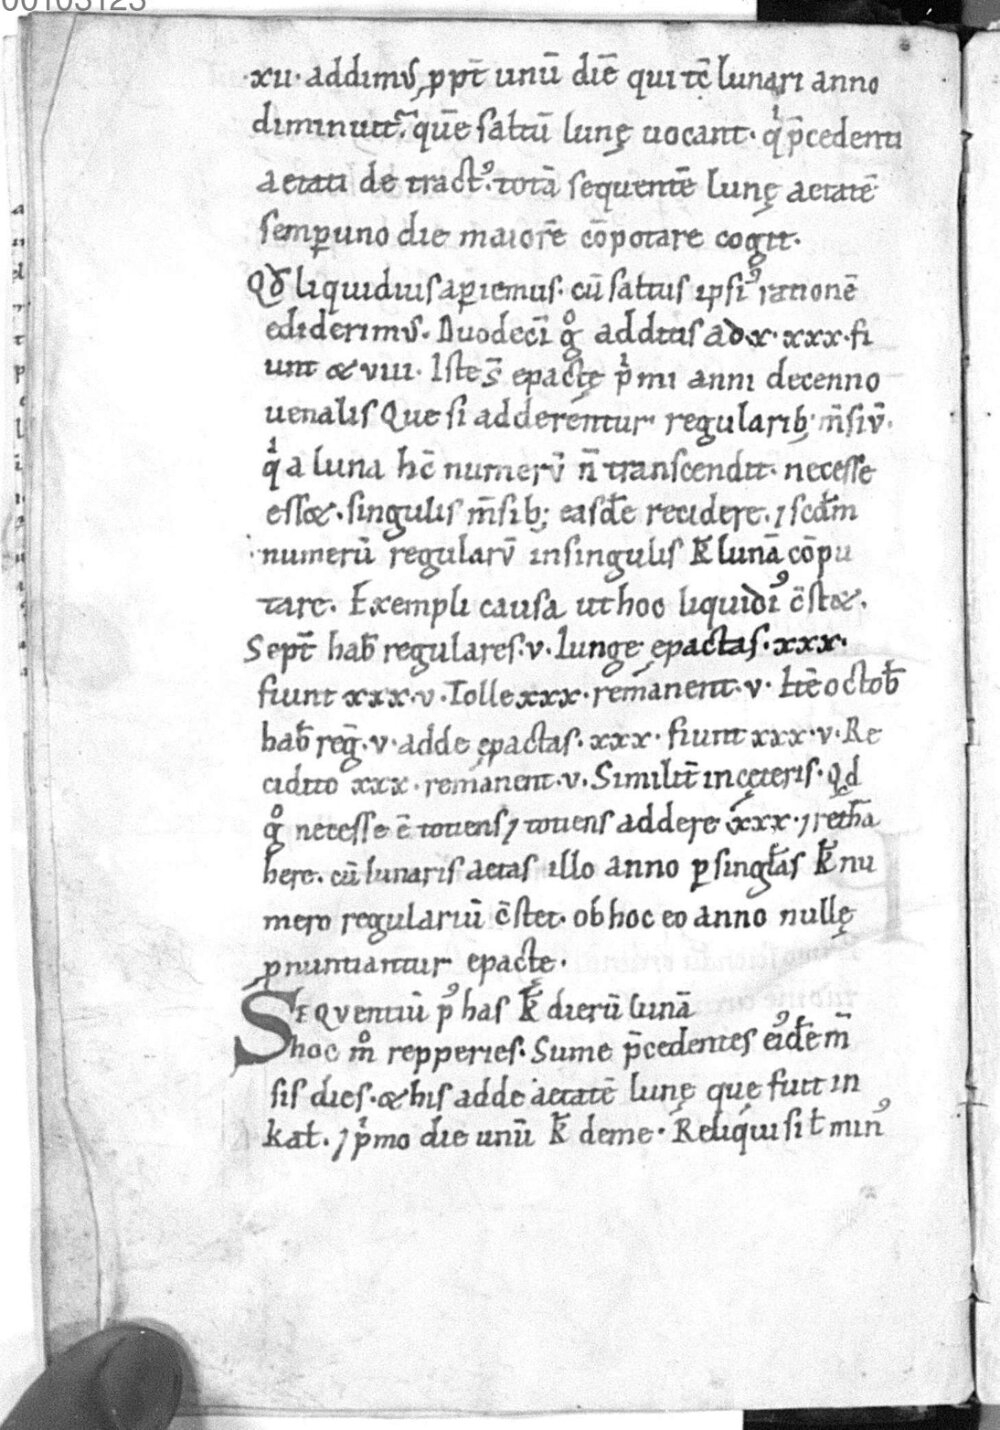 00103123
·xii· addimꝰ ꝓpt̄ unū diē qui tc̄ lunari anno
diminuit᷑. quē saltū lunę uocant· qͥ p̄cedenti
aetati de tractꝰ. totā sequentē lunę aetatē
semꝑ uno die maiorē cōpotare cogit·
Qd̄ liquidius aꝑiemus· cū saltus ipsiꝰ rationē
ediderimꝰ. Duodeci̅ gͦ additis ad·x· xxx·fi
unt & viii· Iste s̄ epactę pͥmi anni decenno
uenalis Que si adderentur regularib; m̄siv̄·
qͥ a luna hc̄ numerv̄ n̄ transcendit· necesse
ess&·singulis m̄sib; easdē recidere.⁊ scd̄m
numerū regularv̄ in singulis k̄ lunā cōpu
tare. Exempli causa ut hoc liquidiꝰ c̄st&.
Sept̄ hab̄ regulares·v· Iunge epactas·xxx·
fiunt xxx·v· Tolle xxx· remanent·v· Itē octob̄
hab̄ reḡ·v· adde epactas·xxx· fiunt xxx·v· Re
cidito xxx· remanent·v· Similit̄ in cęteris· Qd
gͦ necesse ē totiens ⁊ totiens addere xxx·⁊ retha
here. cū lunaris aetas illo anno ꝑ singl̄as k̄ nu
mero regulariū c̄stet· ob hoc eo anno nullę
ꝓnuntiantur epactę·
SEQventiū pꝰ has k̄ dierū lunā
hoc mͦ repperies· Sume p̄cedentes eiꝰdē m̄
sis dies·& his adde aetatē lunę quę fuit in
kal̄·⁊ pͥmo die unū k̄ deme· Reliqui si t̄ minꝰ